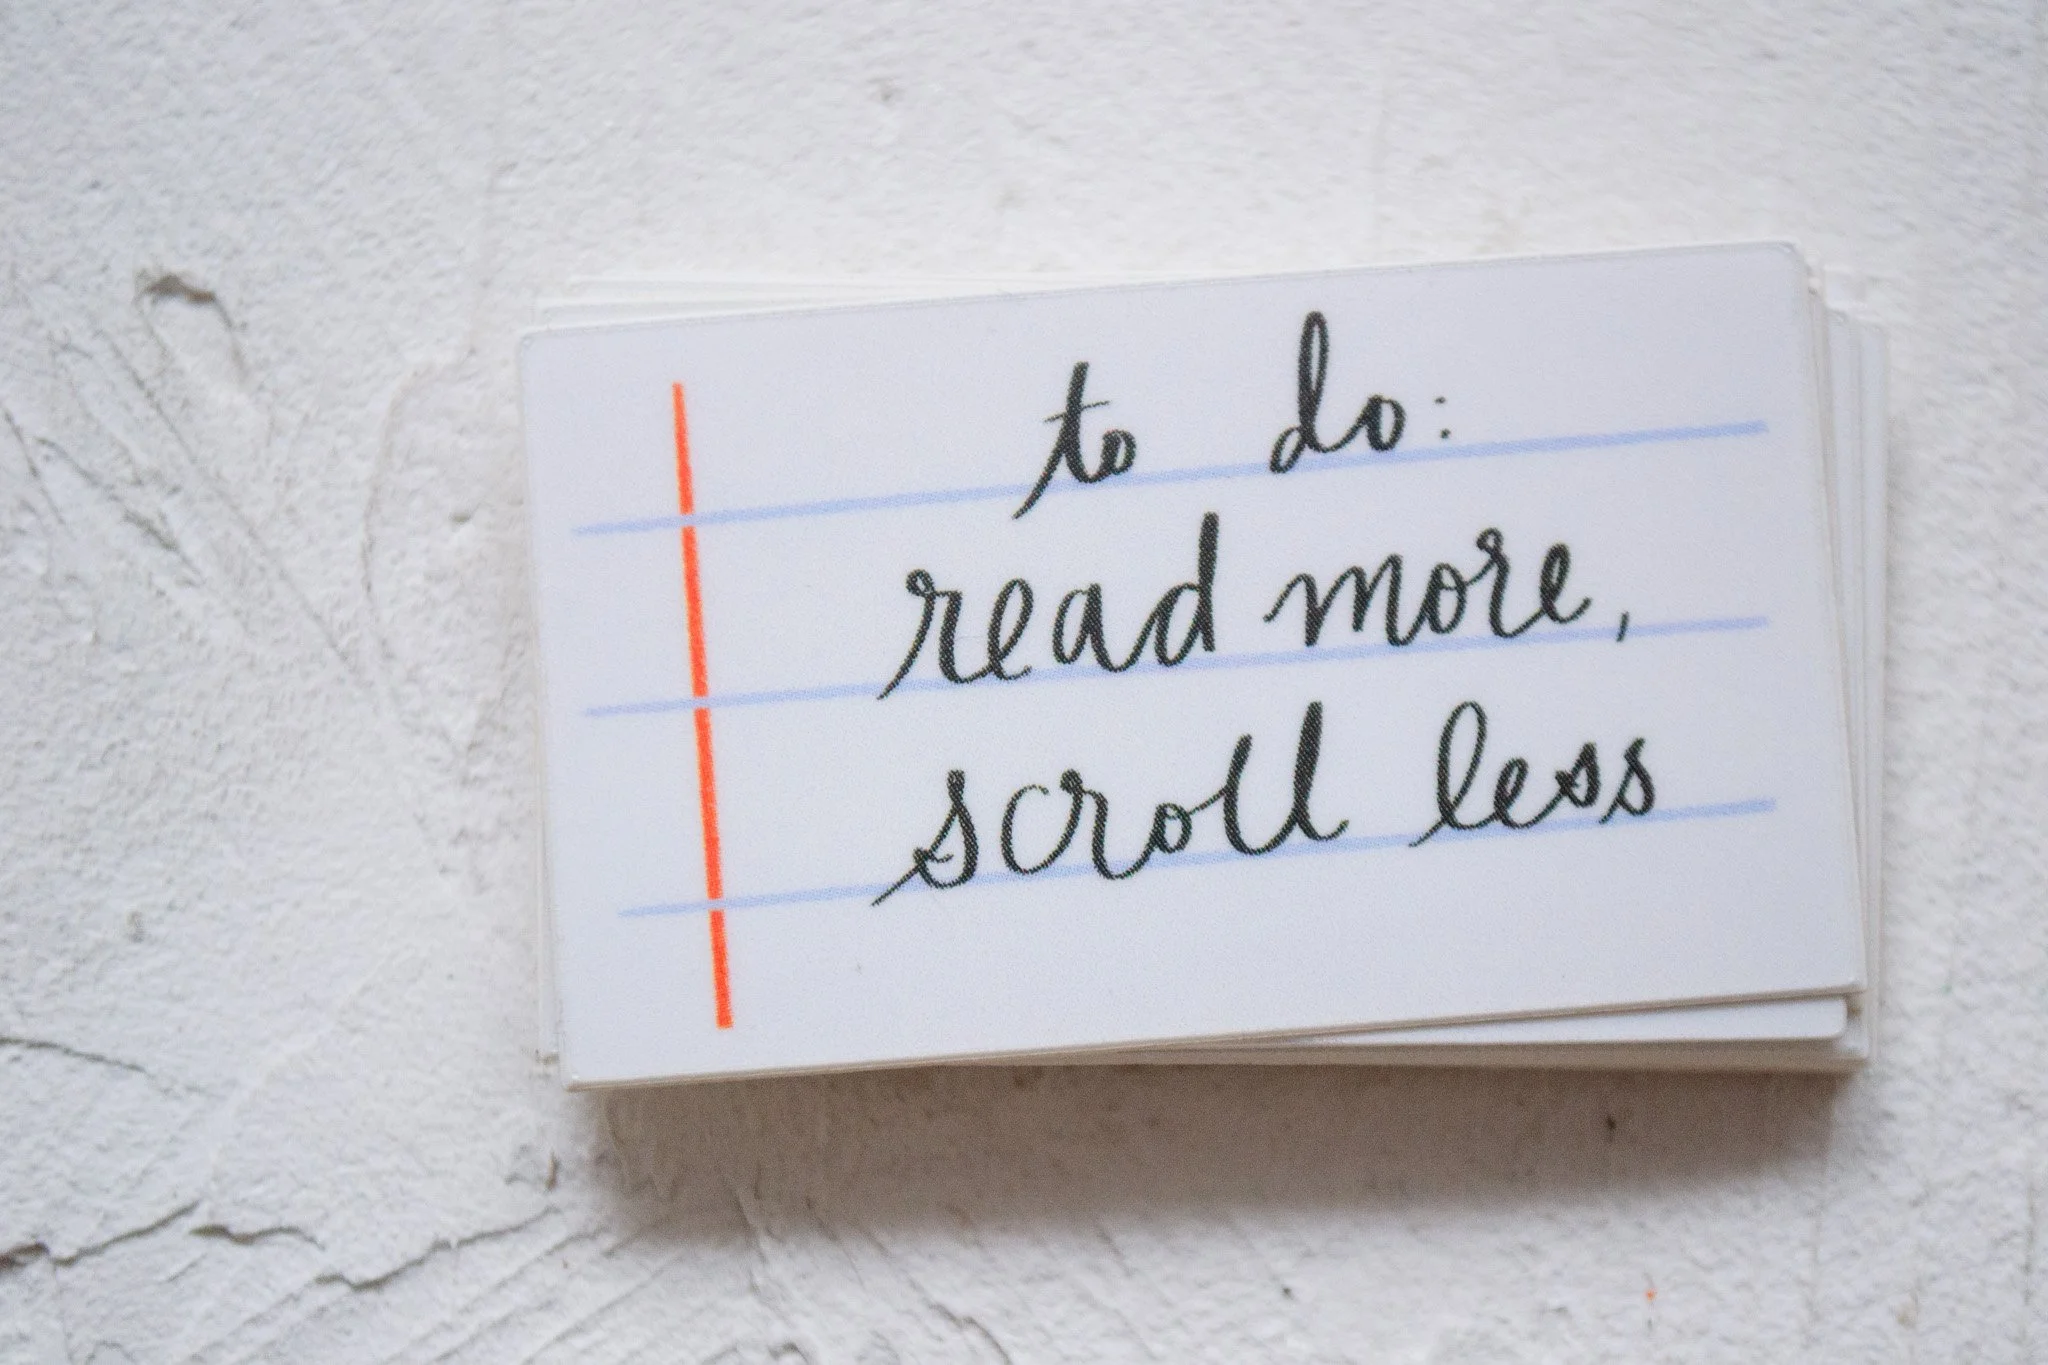 to do:
read more,
scroll less